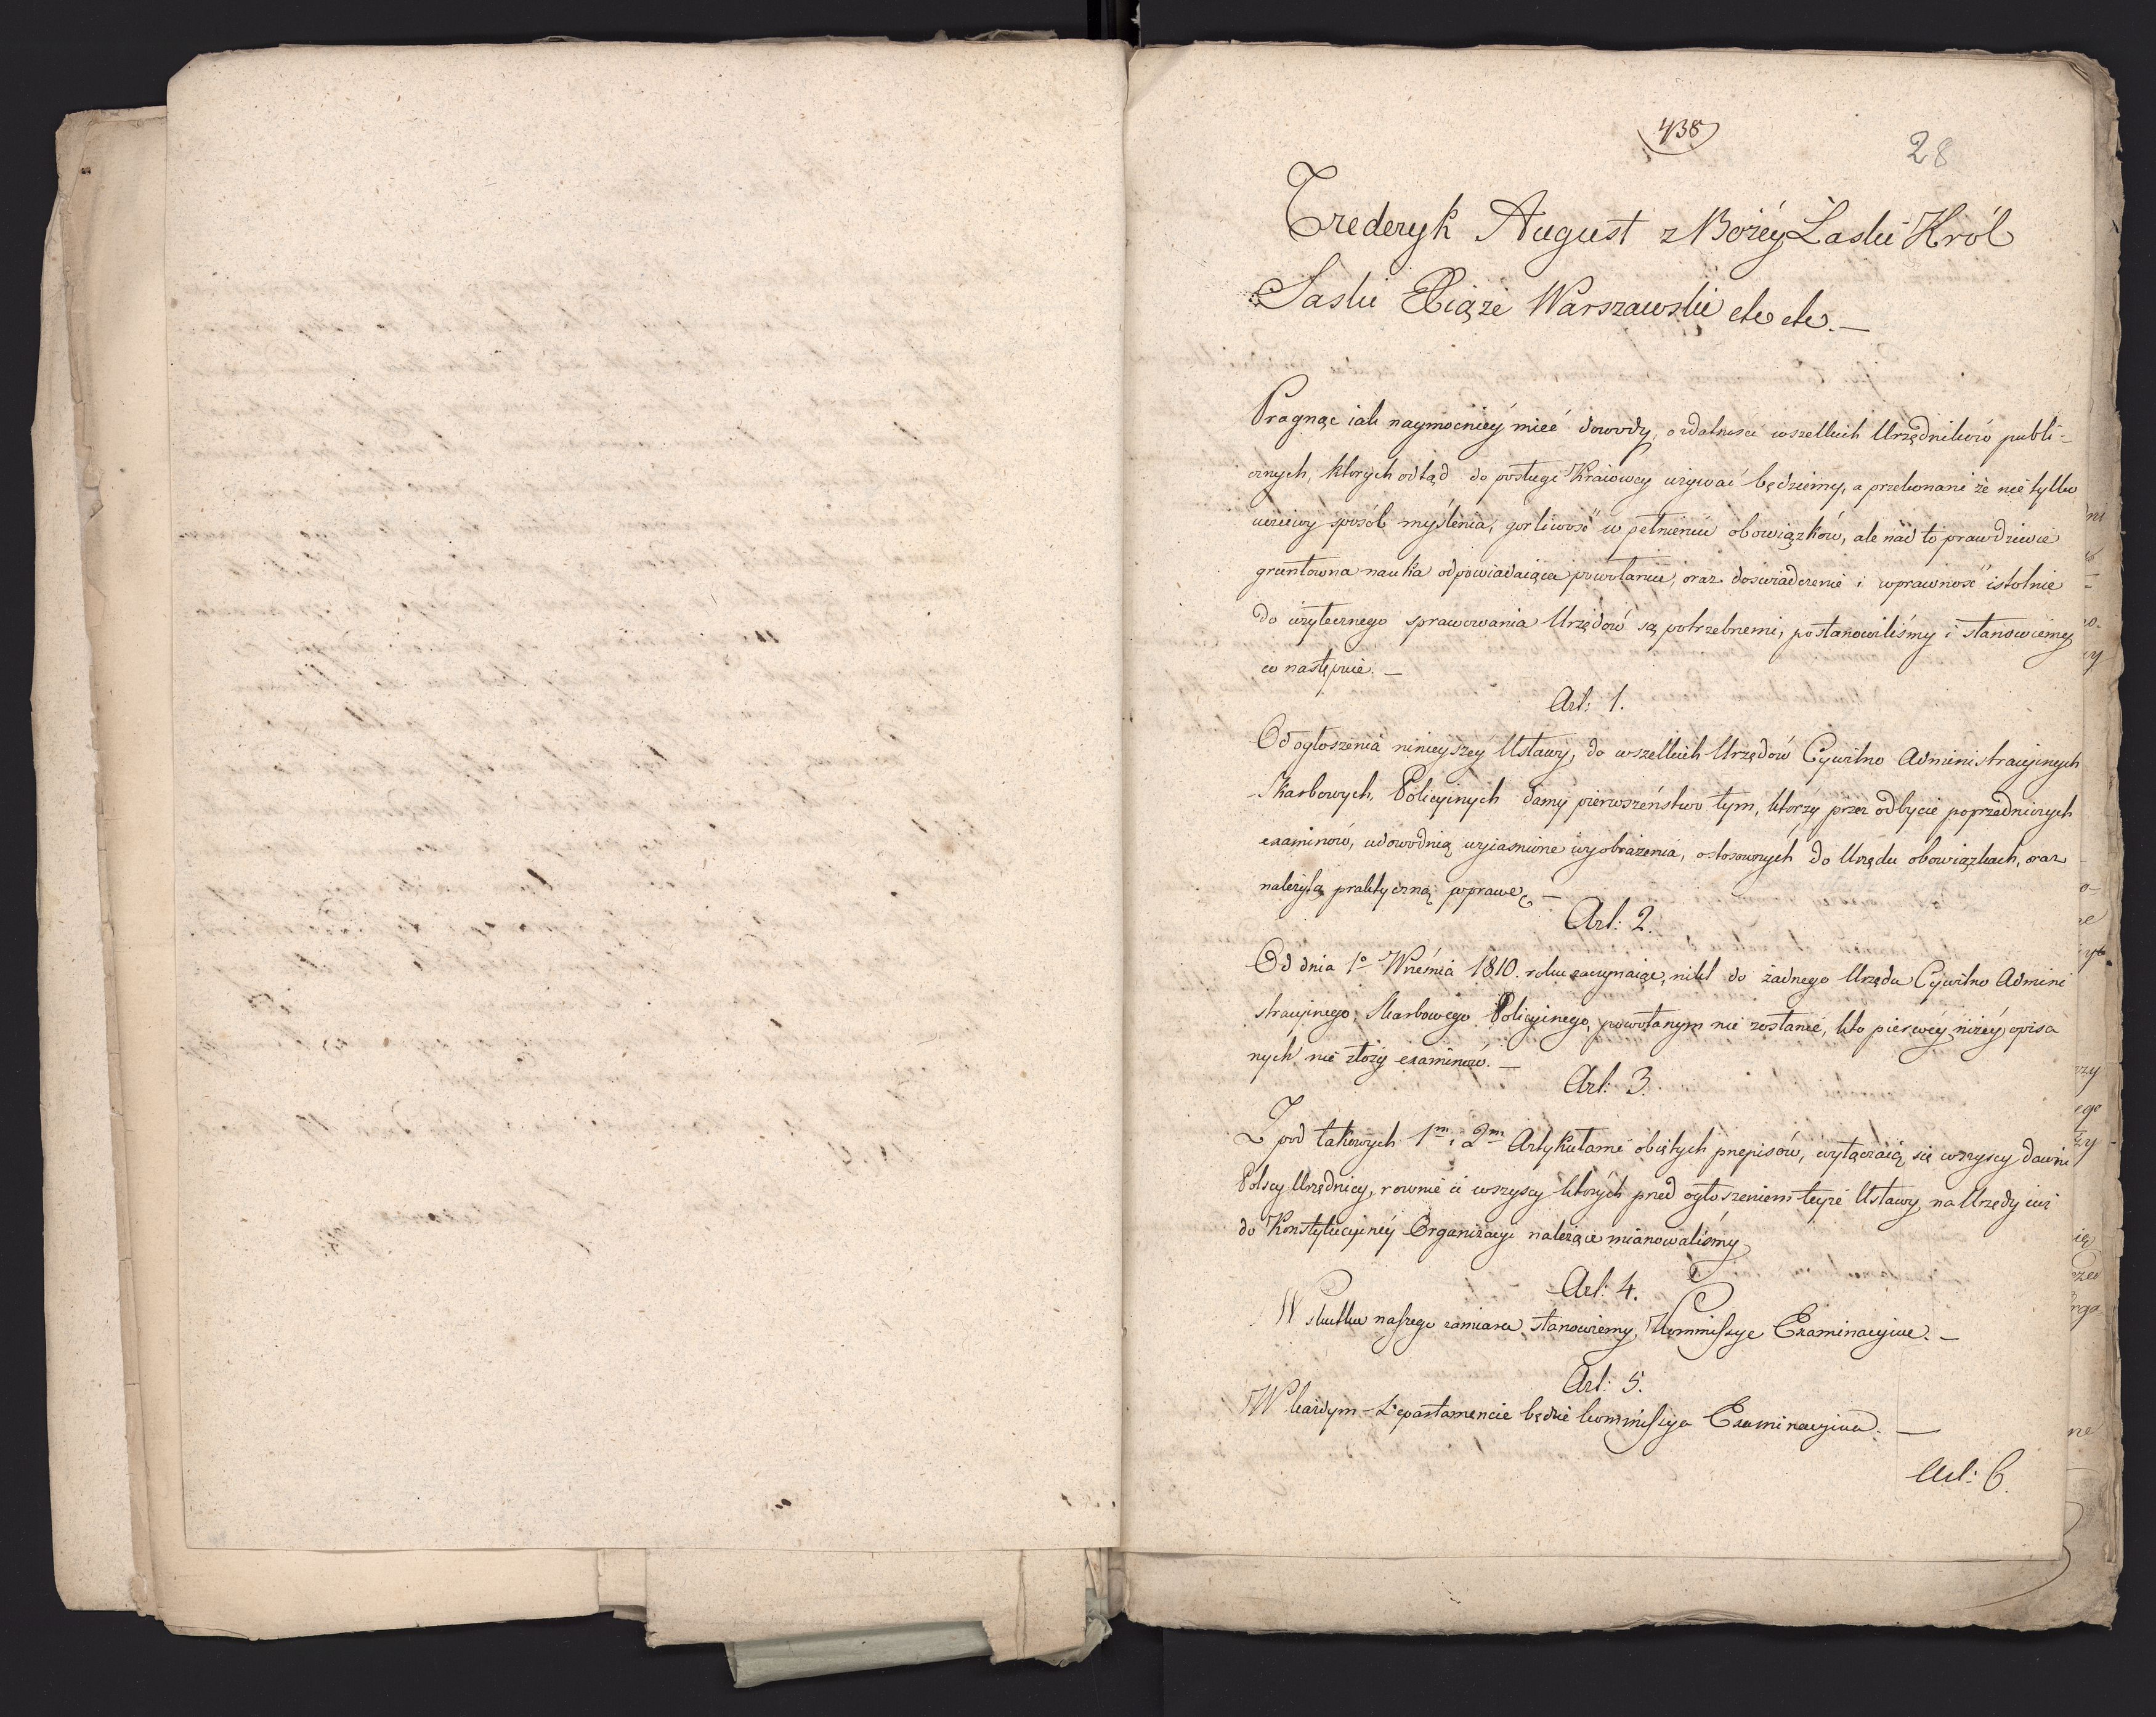 438
28
Frederyk August z Bożey Łaski Król
Saski Xiąże Warszawski etc etc. —
Pragnąc iak naymocniey mieć dowody, o zdatności wszelkich Urzędników publi-
cznych, których odtąd do posługi Kraiowey używać będziemy, a przekonani że nie tylko
uczciwy sposób myślenia, gorliwość w pełnieniu obowiązków, ale nad to prawdziwie
gruntowna nauka odpowiadaiąca powołaniu, oraz doswiadczenie i wprawność istotnie
do użytecznego sprawowania Urzędów są potrzebnemi, postanowiliśmy i stanowiemy
co następuie. —
Art: 1.
Od ogłoszenia ninieyszey Ustawy, do wszelkich Urzędów Cywilno Administracyinych
Skarbowych, Policyinych damy pierwszeństwo tym, którzy przez odbycie poprzedniczych
examinów, udowodnią wyiasnione wyobrażenia, o stosownych do Urzędu obowiązkach, oraz
należytą praktyczną wprawę. —
Art: 2.
Od dnia 1o Wrześnía 1810. roku zaczynaiąc, nikt do żadnego Urzędu Cywilno Admini
stracyinego, Skarbowego Policyinego, powołanym nie zostanie, kto pierwey niżey opisa
nych nie złoży examinów. —
Art: 3.
Z pod takowych 1m i 2m Artykułami obiętych przepisów, wyłączaią się wszyscy dawni
Polscy Urzędnicy, rownie ci wszyscy których przed ogłoszeniem teyże Ustawy, na Urzędy iuż
do Konstytucyiney Organizacyi należące mianowaliśmy
Art: 4.
W skutku naszego zamiaru, stanowiemy, Kommissye Examinacyine. —
Art: 5.
W każdym Departamencie będzie kommissya Examinacyina. —
Art: 6.